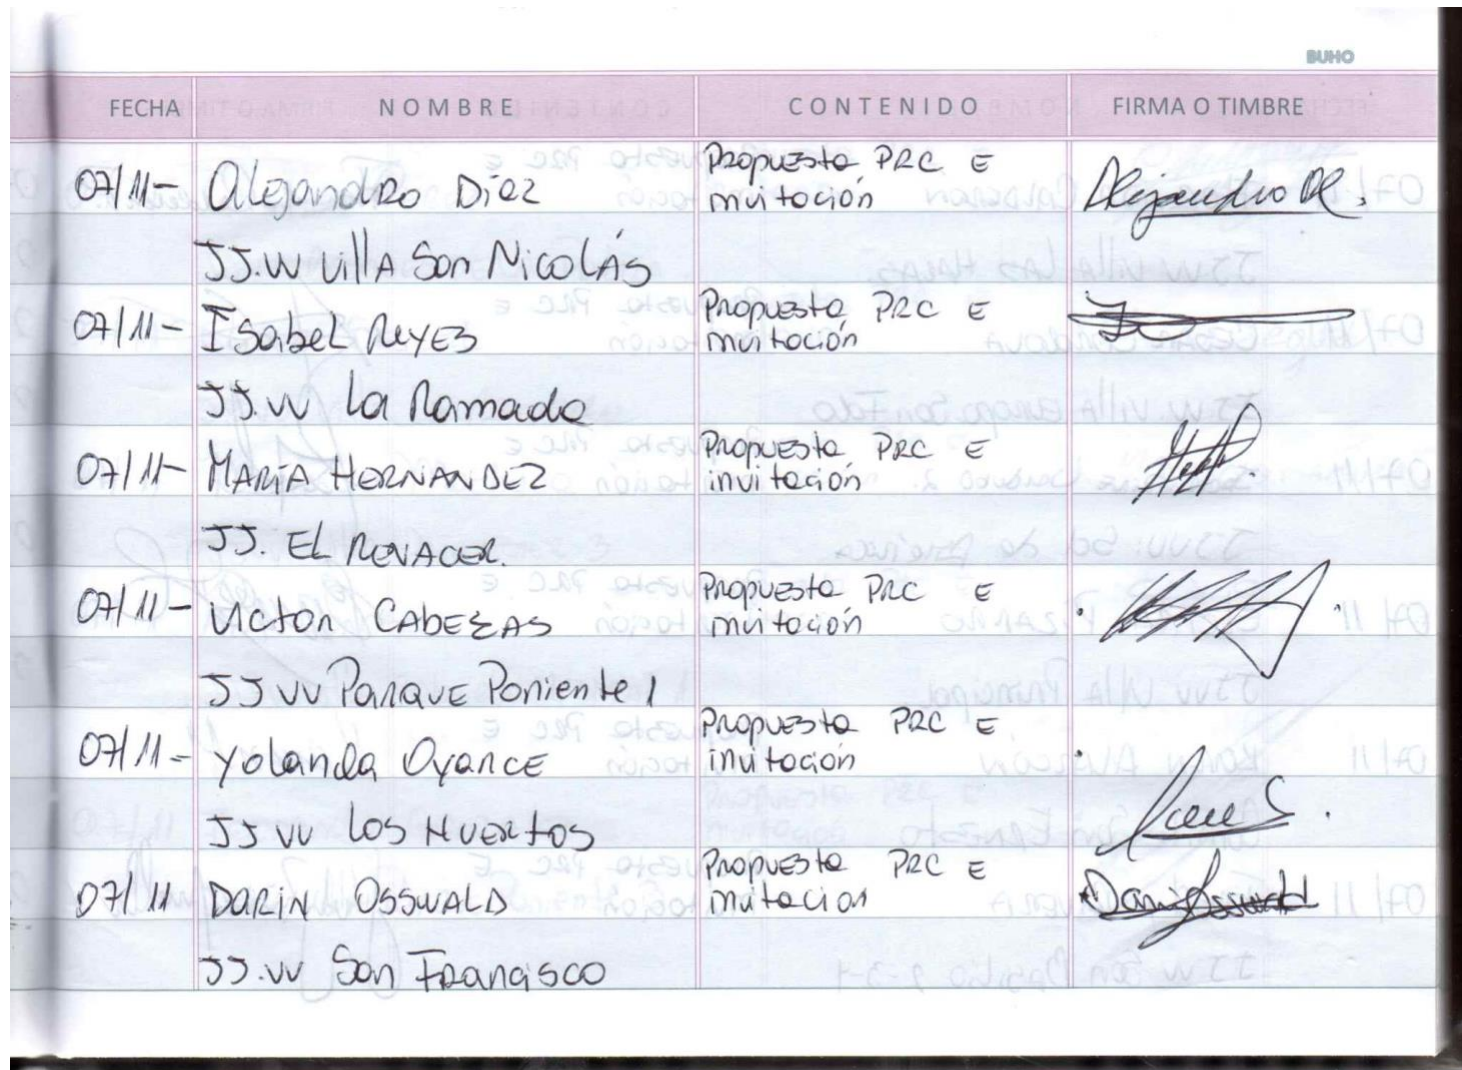 BUHO
FECHA NOMBRE CONTENIDO FIRMA O TIMBRE
07/11- Alejandro Díaz Propuesta PRC E invitación Alejandro
JJ.VV Villa San Nicolás
07/11- Isabel Reyes Propuesta PRC E invitación
JJ.VV La Ramada
07/11- MARÍA HERNANDEZ Propuesta PRC E invitación
JJ. EL RENACER.
07/11- Victor CABEZAS Propuesta PRC E invitación
JJ VV Parque Poniente 1
07/11- Yolanda Oyarce Propuesta PRC E invitación
JJ VV Los Huertos
07/11 DARIN OSSWALD Propuesta PRC E invitacion Darin Osswald
JJ.VV San Francisco